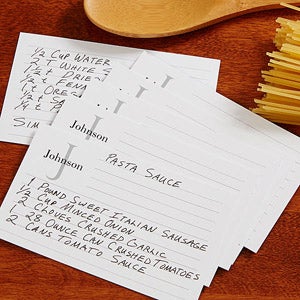 ½ CUP WATER
2 T WHITE S
1½ t DRIE
½ t FENN
1 t OREG
½ t SA
¼ t P
SIM
J
J
Johnson
J
Johnson
PASTA SAUCE
1 POUND SWEET ITALIAN SAUSAGE
½ CUP MINCED ONION
2 CLOVES CRUSHED GARLIC
1 28 OUNCE CAN CRUSHED TOMATOES
2 CANS TOMATO SAUCE